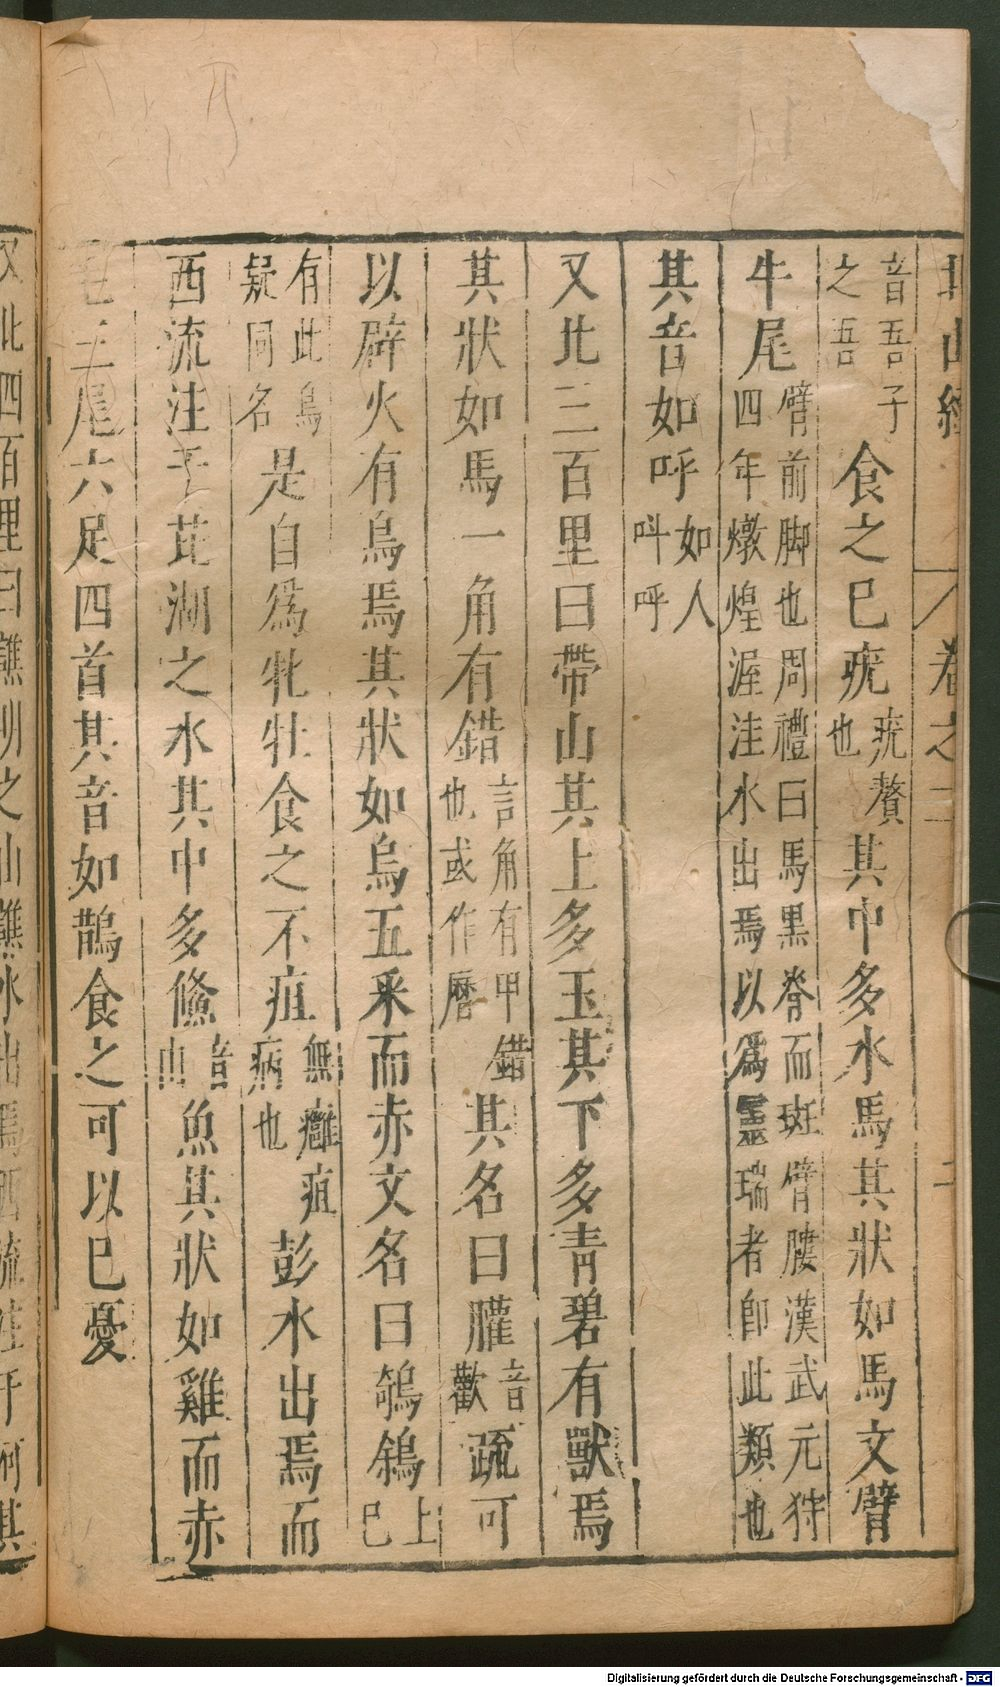 北山經 卷之二 二
音吾子之吾食之已疣疣贅也其中多水馬其狀如馬文臂
牛尾臂前脚也周禮曰馬黑脊而斑臂膢漢武元狩四年燉煌渥洼水出焉以爲靈瑞者卽此類也
其音如呼如人叫呼
又北三百里曰帶山其上多玉其下多青碧有獸焉
其狀如馬一角有錯言角有甲錯也或作厝其名曰䑏音歡疏可
以辟火有鳥焉其狀如烏五采而赤文名曰鵸鵌上已
有此鳥疑同名是自爲牝牡食之不疽無癰疽病也彭水出焉而
西流注于芘湖之水其中多儵音由魚其狀如雞而赤
毛三尾六足四首其音如鵲食之可以已憂
又北四百里曰譙明之山譙水出焉西流注于河其
Digitalisierung gefördert durch die Deutsche Forschungsgemeinschaft - DFG